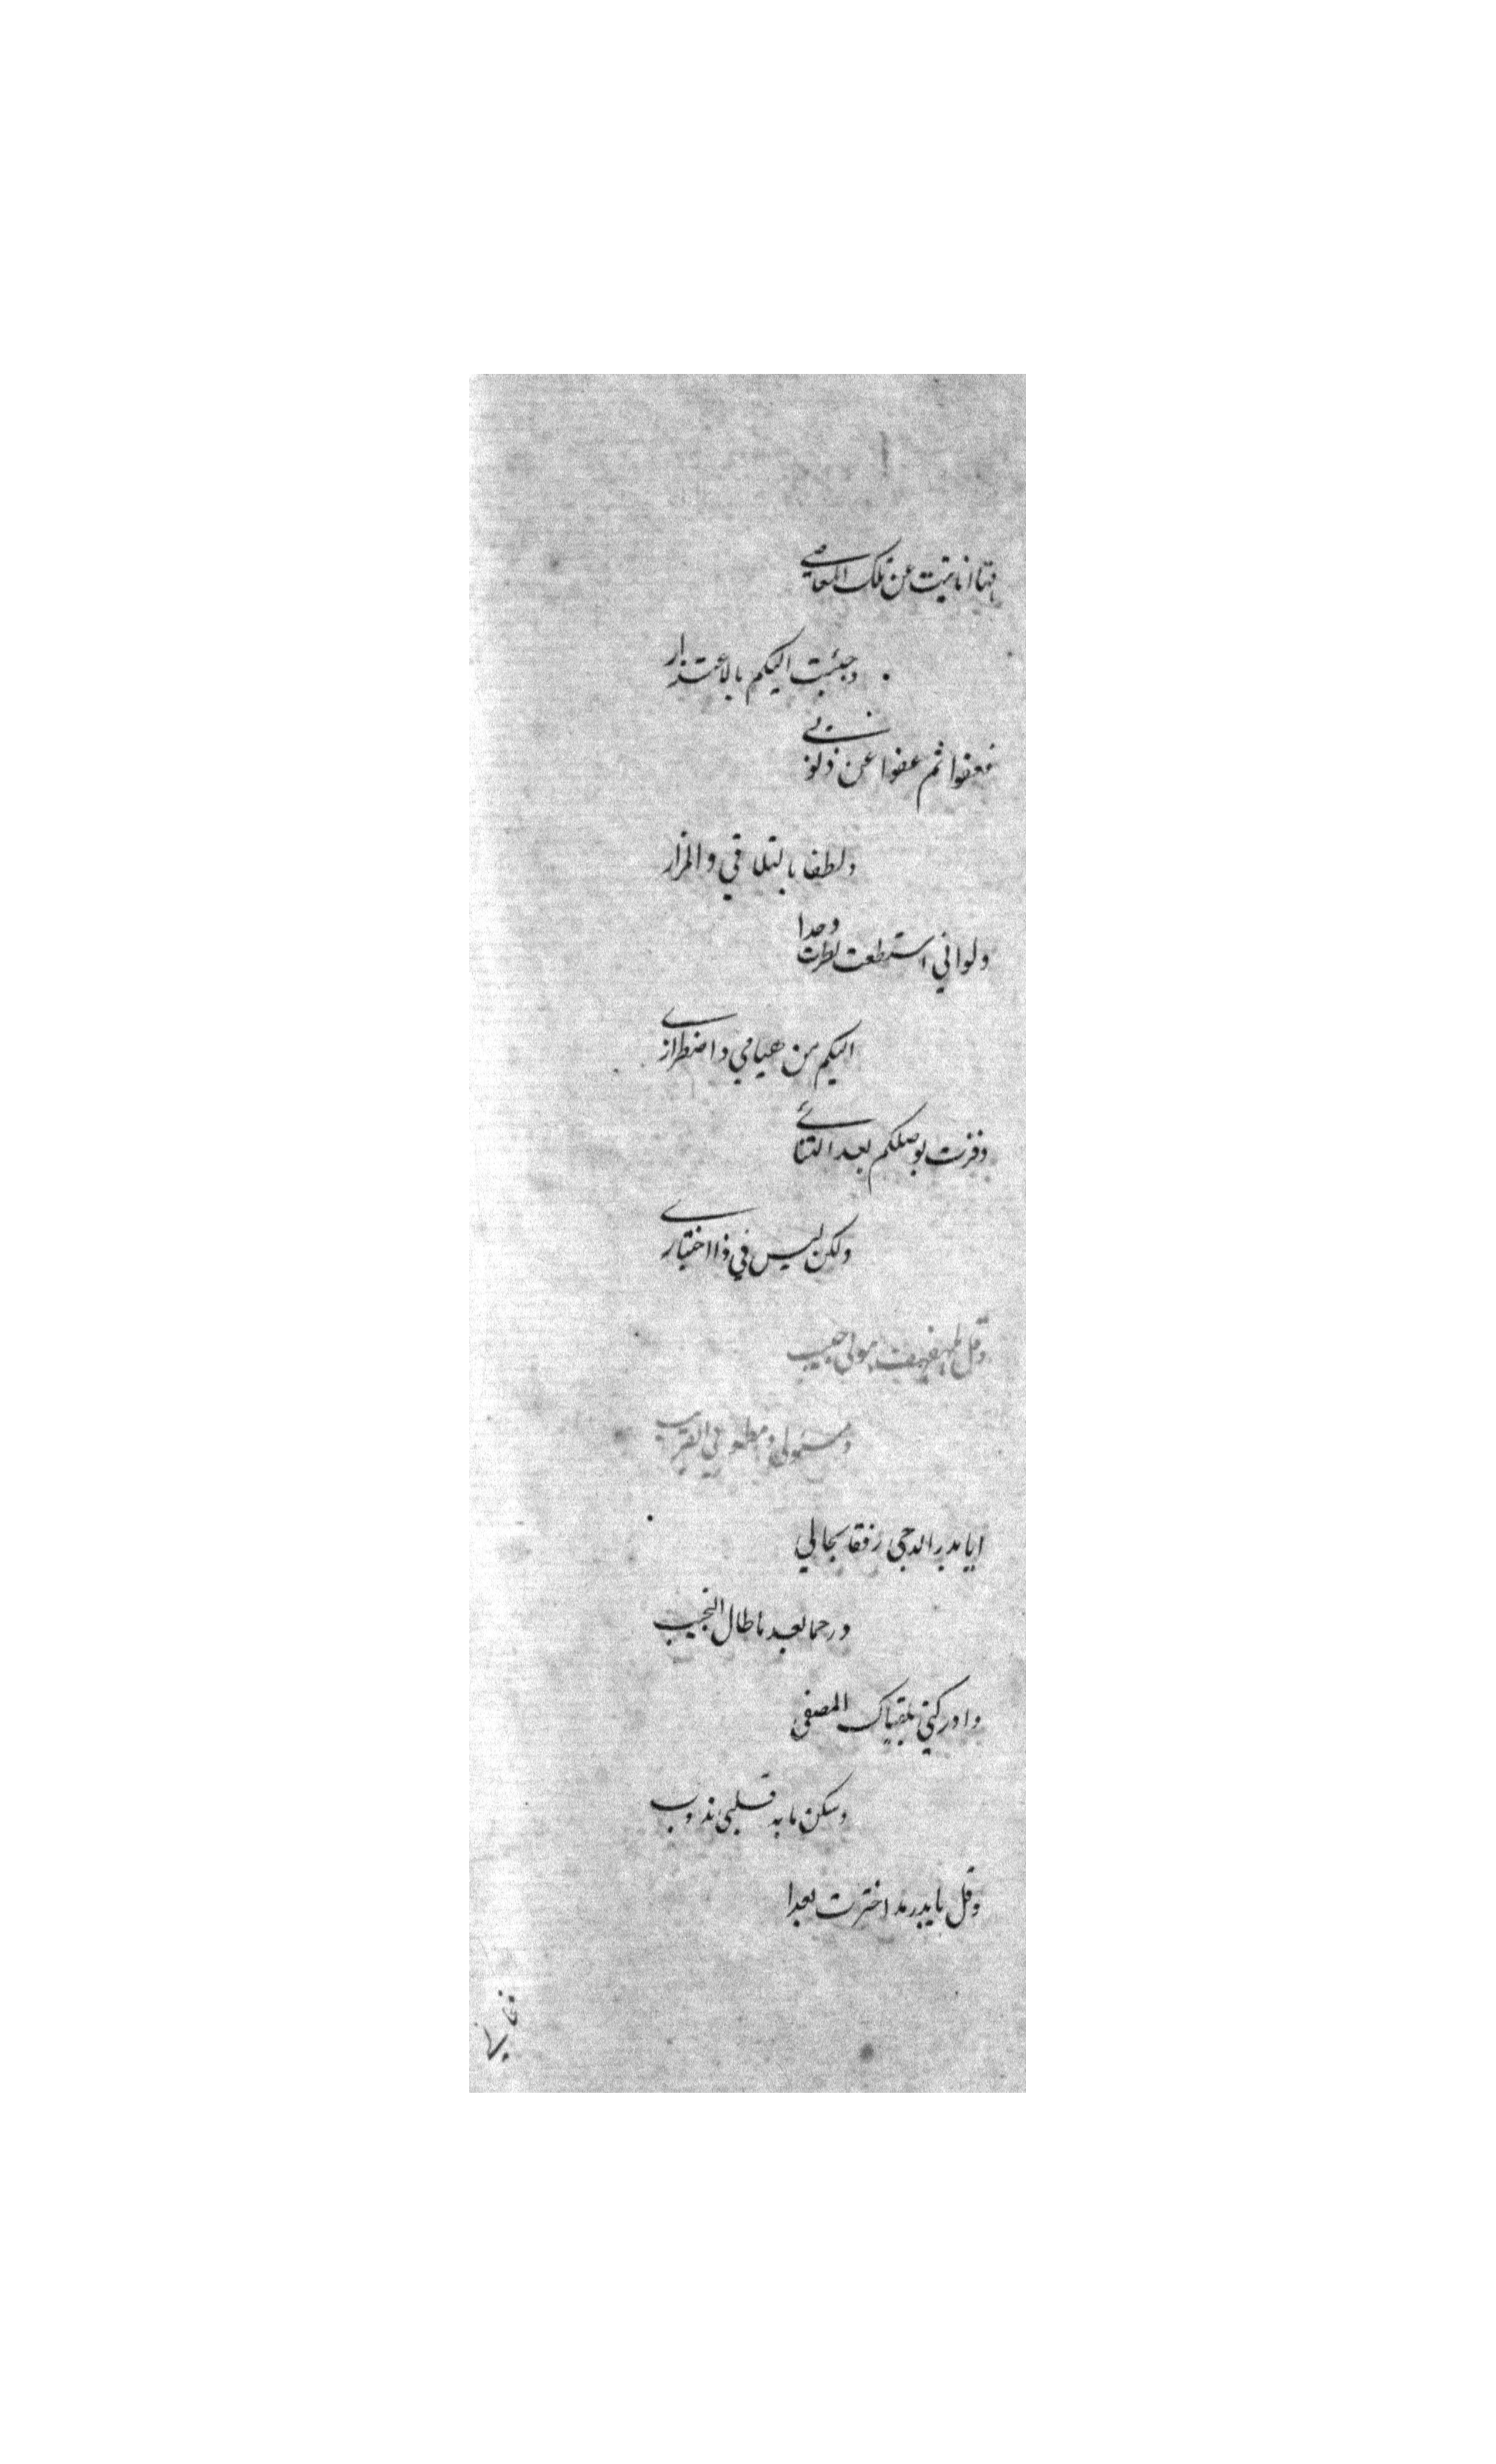 فها انا تبت عن تلك المعاصي
وجئت اليكم بالاعتذار
فعفوا ثم عفوا عن ذنوبي
ولطفا بالتلاقي والمزار
ولو اني استطعت لطرت وجدا
اليكم من هيامي واضطراري
وفزت بوصلكم بعد التنائي
ولكن ليس في ذا اختياري
وقل لمهفهف مولى حبيب
ومسئولي ومطلوبي القريب
ايا بدر الدجى رفقا بحالي
ورحما بعد ما طال النحيب
وادركني بلقياك المصفى
وسكن ما به قلبي يذوب
وقل يا بدر مذ اخترت بعدا